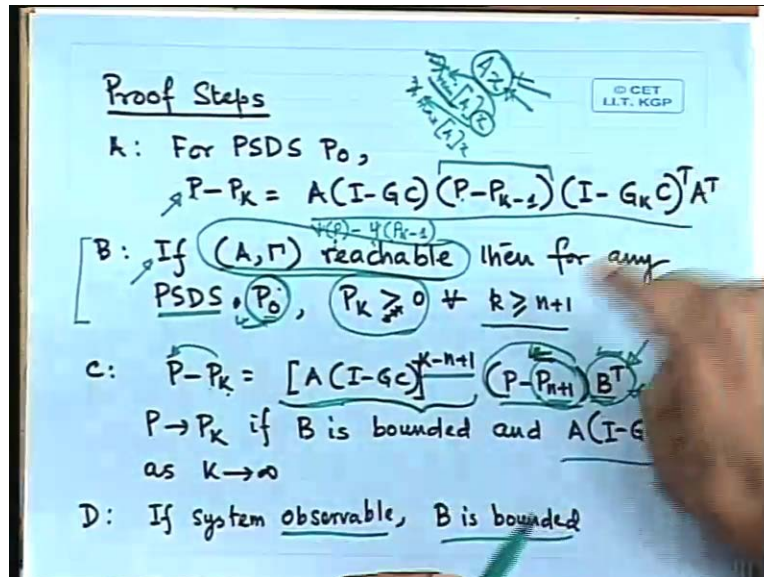 Proof Steps
Az
© CET
I.I.T. KGP
A: For PSDS P₀,
P-P_K = A(I-GC) (P-P_{K-1}) (I-G_K C)^T A^T
Ψ(P) - Ψ(P_{K-1})
B: If (A,Γ) reachable then for any
PSDS P₀, P_K ≥ 0 ∀ k ≥ n+1
C: P-P_K = [A(I-GC)]^{K-n+1} (P-P_{n+1}) B^T
P → P_K if B is bounded and A(I-G
as K → ∞
D: If system observable, B is bounded